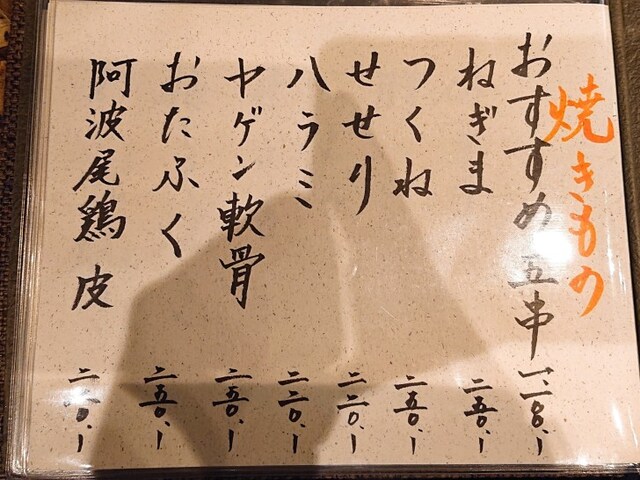 焼きもの
おすすめ五串
ねぎま 二五〇.ー
つくね 二五〇.ー
せせり 二二〇.ー
ハラミ 二二〇.ー
ヤゲン軟骨 二五〇.ー
おたふく 二五〇.ー
阿波尾鶏 皮 二二〇.ー